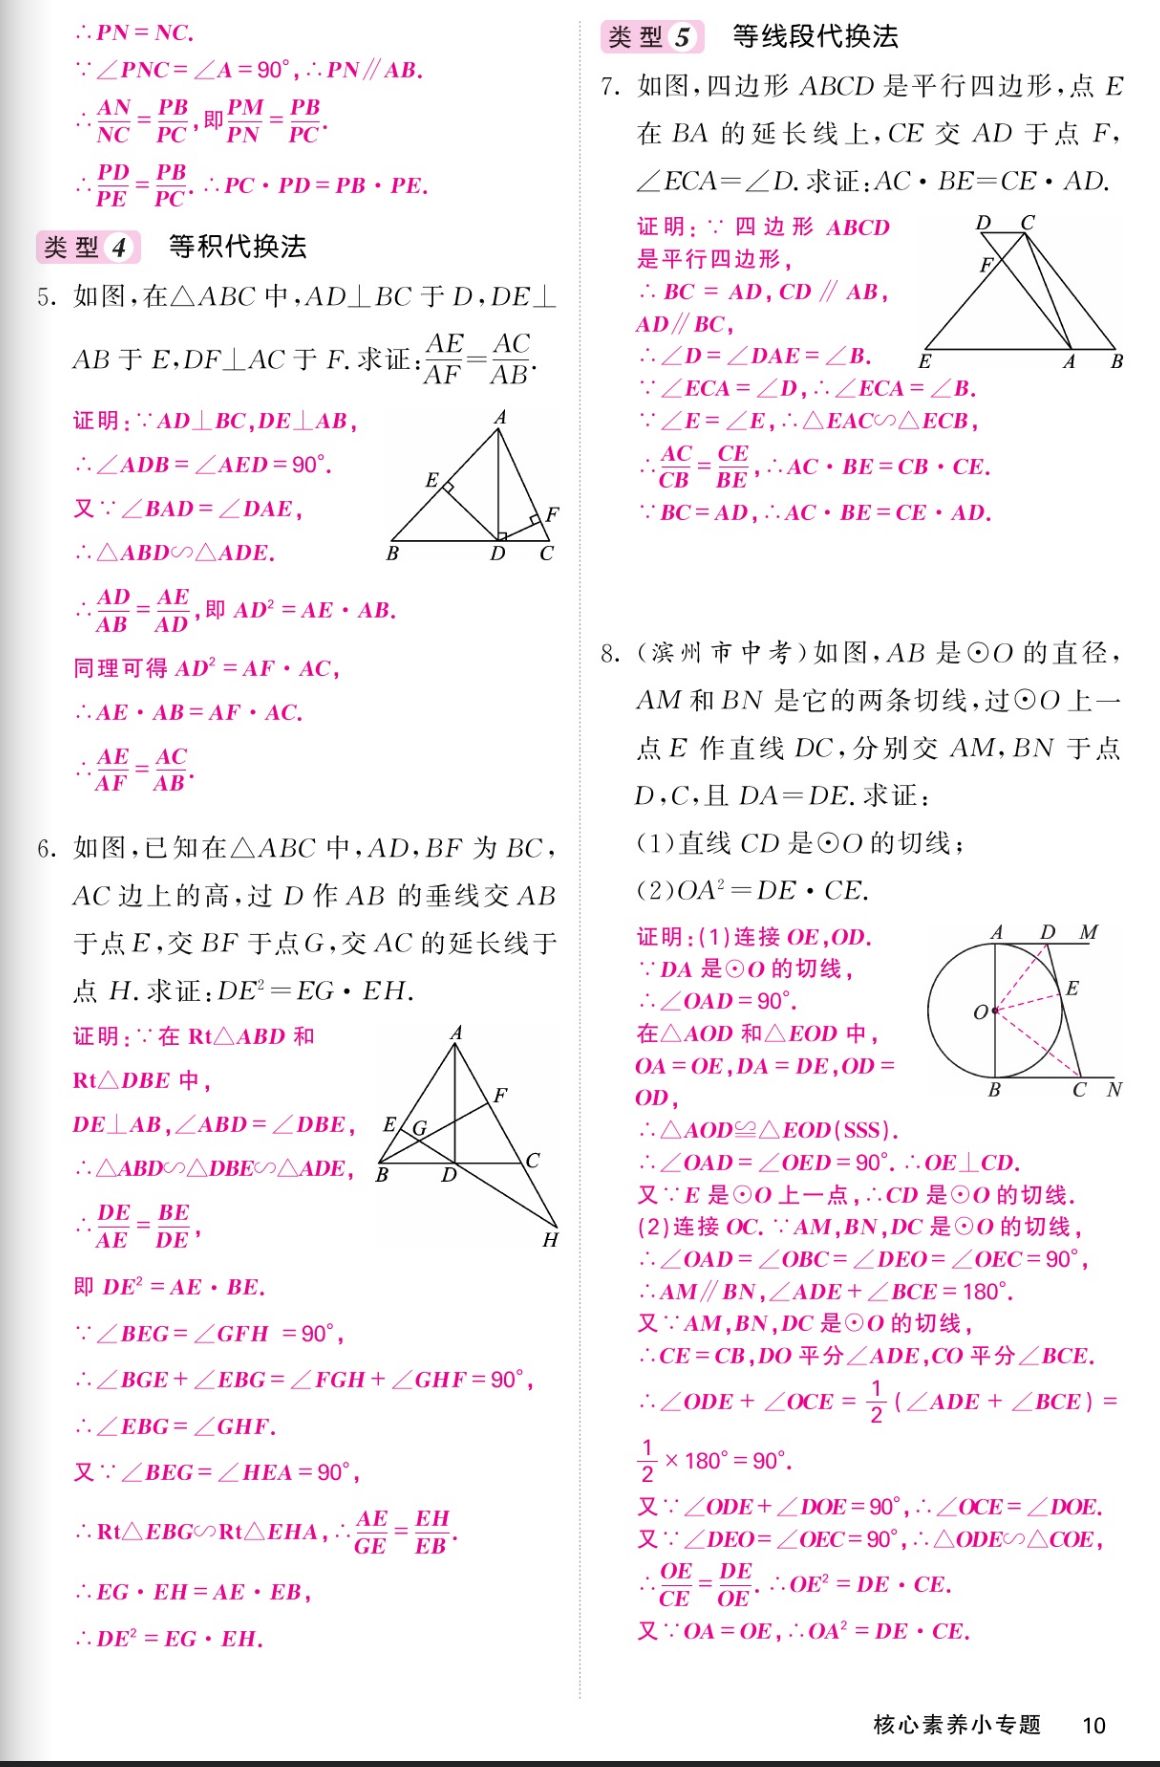 ∴PN=NC.
∵∠PNC=∠A=90°,∴PN∥AB.
∴AN/NC=PB/PC,即PM/PN=PB/PC.
∴PD/PE=PB/PC.∴PC·PD=PB·PE.
类型4 等积代换法
5. 如图,在△ABC中,AD⊥BC于D,DE⊥
AB于E,DF⊥AC于F.求证:AE/AF=AC/AB.
证明:∵AD⊥BC,DE⊥AB,
∴∠ADB=∠AED=90°.
又∵∠BAD=∠DAE,
∴△ABD∽△ADE.
∴AD/AB=AE/AD,即AD²=AE·AB.
同理可得AD²=AF·AC,
∴AE·AB=AF·AC.
∴AE/AF=AC/AB.
A
E
F
B D C
6. 如图,已知在△ABC中,AD,BF为BC,
AC边上的高,过D作AB的垂线交AB
于点E,交BF于点G,交AC的延长线于
点H.求证:DE²=EG·EH.
证明:∵在Rt△ABD和
Rt△DBE中,
DE⊥AB,∠ABD=∠DBE,
∴△ABD∽△DBE∽△ADE,
∴DE/AE=BE/DE,
即DE²=AE·BE.
∵∠BEG=∠GFH=90°,
∴∠BGE+∠EBG=∠FGH+∠GHF=90°,
∴∠EBG=∠GHF.
又∵∠BEG=∠HEA=90°,
∴Rt△EBG∽Rt△EHA,∴AE/GE=EH/EB.
∴EG·EH=AE·EB,
∴DE²=EG·EH.
A
F
E G
B D C
H
类型5 等线段代换法
7. 如图,四边形ABCD是平行四边形,点E
在BA的延长线上,CE交AD于点F,
∠ECA=∠D.求证:AC·BE=CE·AD.
证明:∵四边形ABCD
是平行四边形,
∴BC=AD,CD∥AB,
AD∥BC,
∴∠D=∠DAE=∠B.
∵∠ECA=∠D,∴∠ECA=∠B.
∵∠E=∠E,∴△EAC∽△ECB,
∴AC/CB=CE/BE,∴AC·BE=CB·CE.
∵BC=AD,∴AC·BE=CE·AD.
D C
F
E A B
8. (滨州市中考)如图,AB是⊙O的直径,
AM和BN是它的两条切线,过⊙O上一
点E作直线DC,分别交AM,BN于点
D,C,且DA=DE.求证:
(1)直线CD是⊙O的切线;
(2)OA²=DE·CE.
证明:(1)连接OE,OD.
∵DA是⊙O的切线,
∴∠OAD=90°.
在△AOD和△EOD中,
OA=OE,DA=DE,OD=
OD,
∴△AOD≌△EOD(SSS).
∴∠OAD=∠OED=90°.∴OE⊥CD.
又∵E是⊙O上一点,∴CD是⊙O的切线.
(2)连接OC.∵AM,BN,DC是⊙O的切线,
∴∠OAD=∠OBC=∠DEO=∠OEC=90°,
∴AM∥BN,∠ADE+∠BCE=180°.
又∵AM,BN,DC是⊙O的切线,
∴CE=CB,DO平分∠ADE,CO平分∠BCE.
∴∠ODE+∠OCE=1/2(∠ADE+∠BCE)=
1/2×180°=90°.
又∵∠ODE+∠DOE=90°,∴∠OCE=∠DOE.
又∵∠DEO=∠OEC=90°,∴△ODE∽△COE,
∴OE/CE=DE/OE.∴OE²=DE·CE.
又∵OA=OE,∴OA²=DE·CE.
A D M
E
O
B C N
核心素养小专题 10